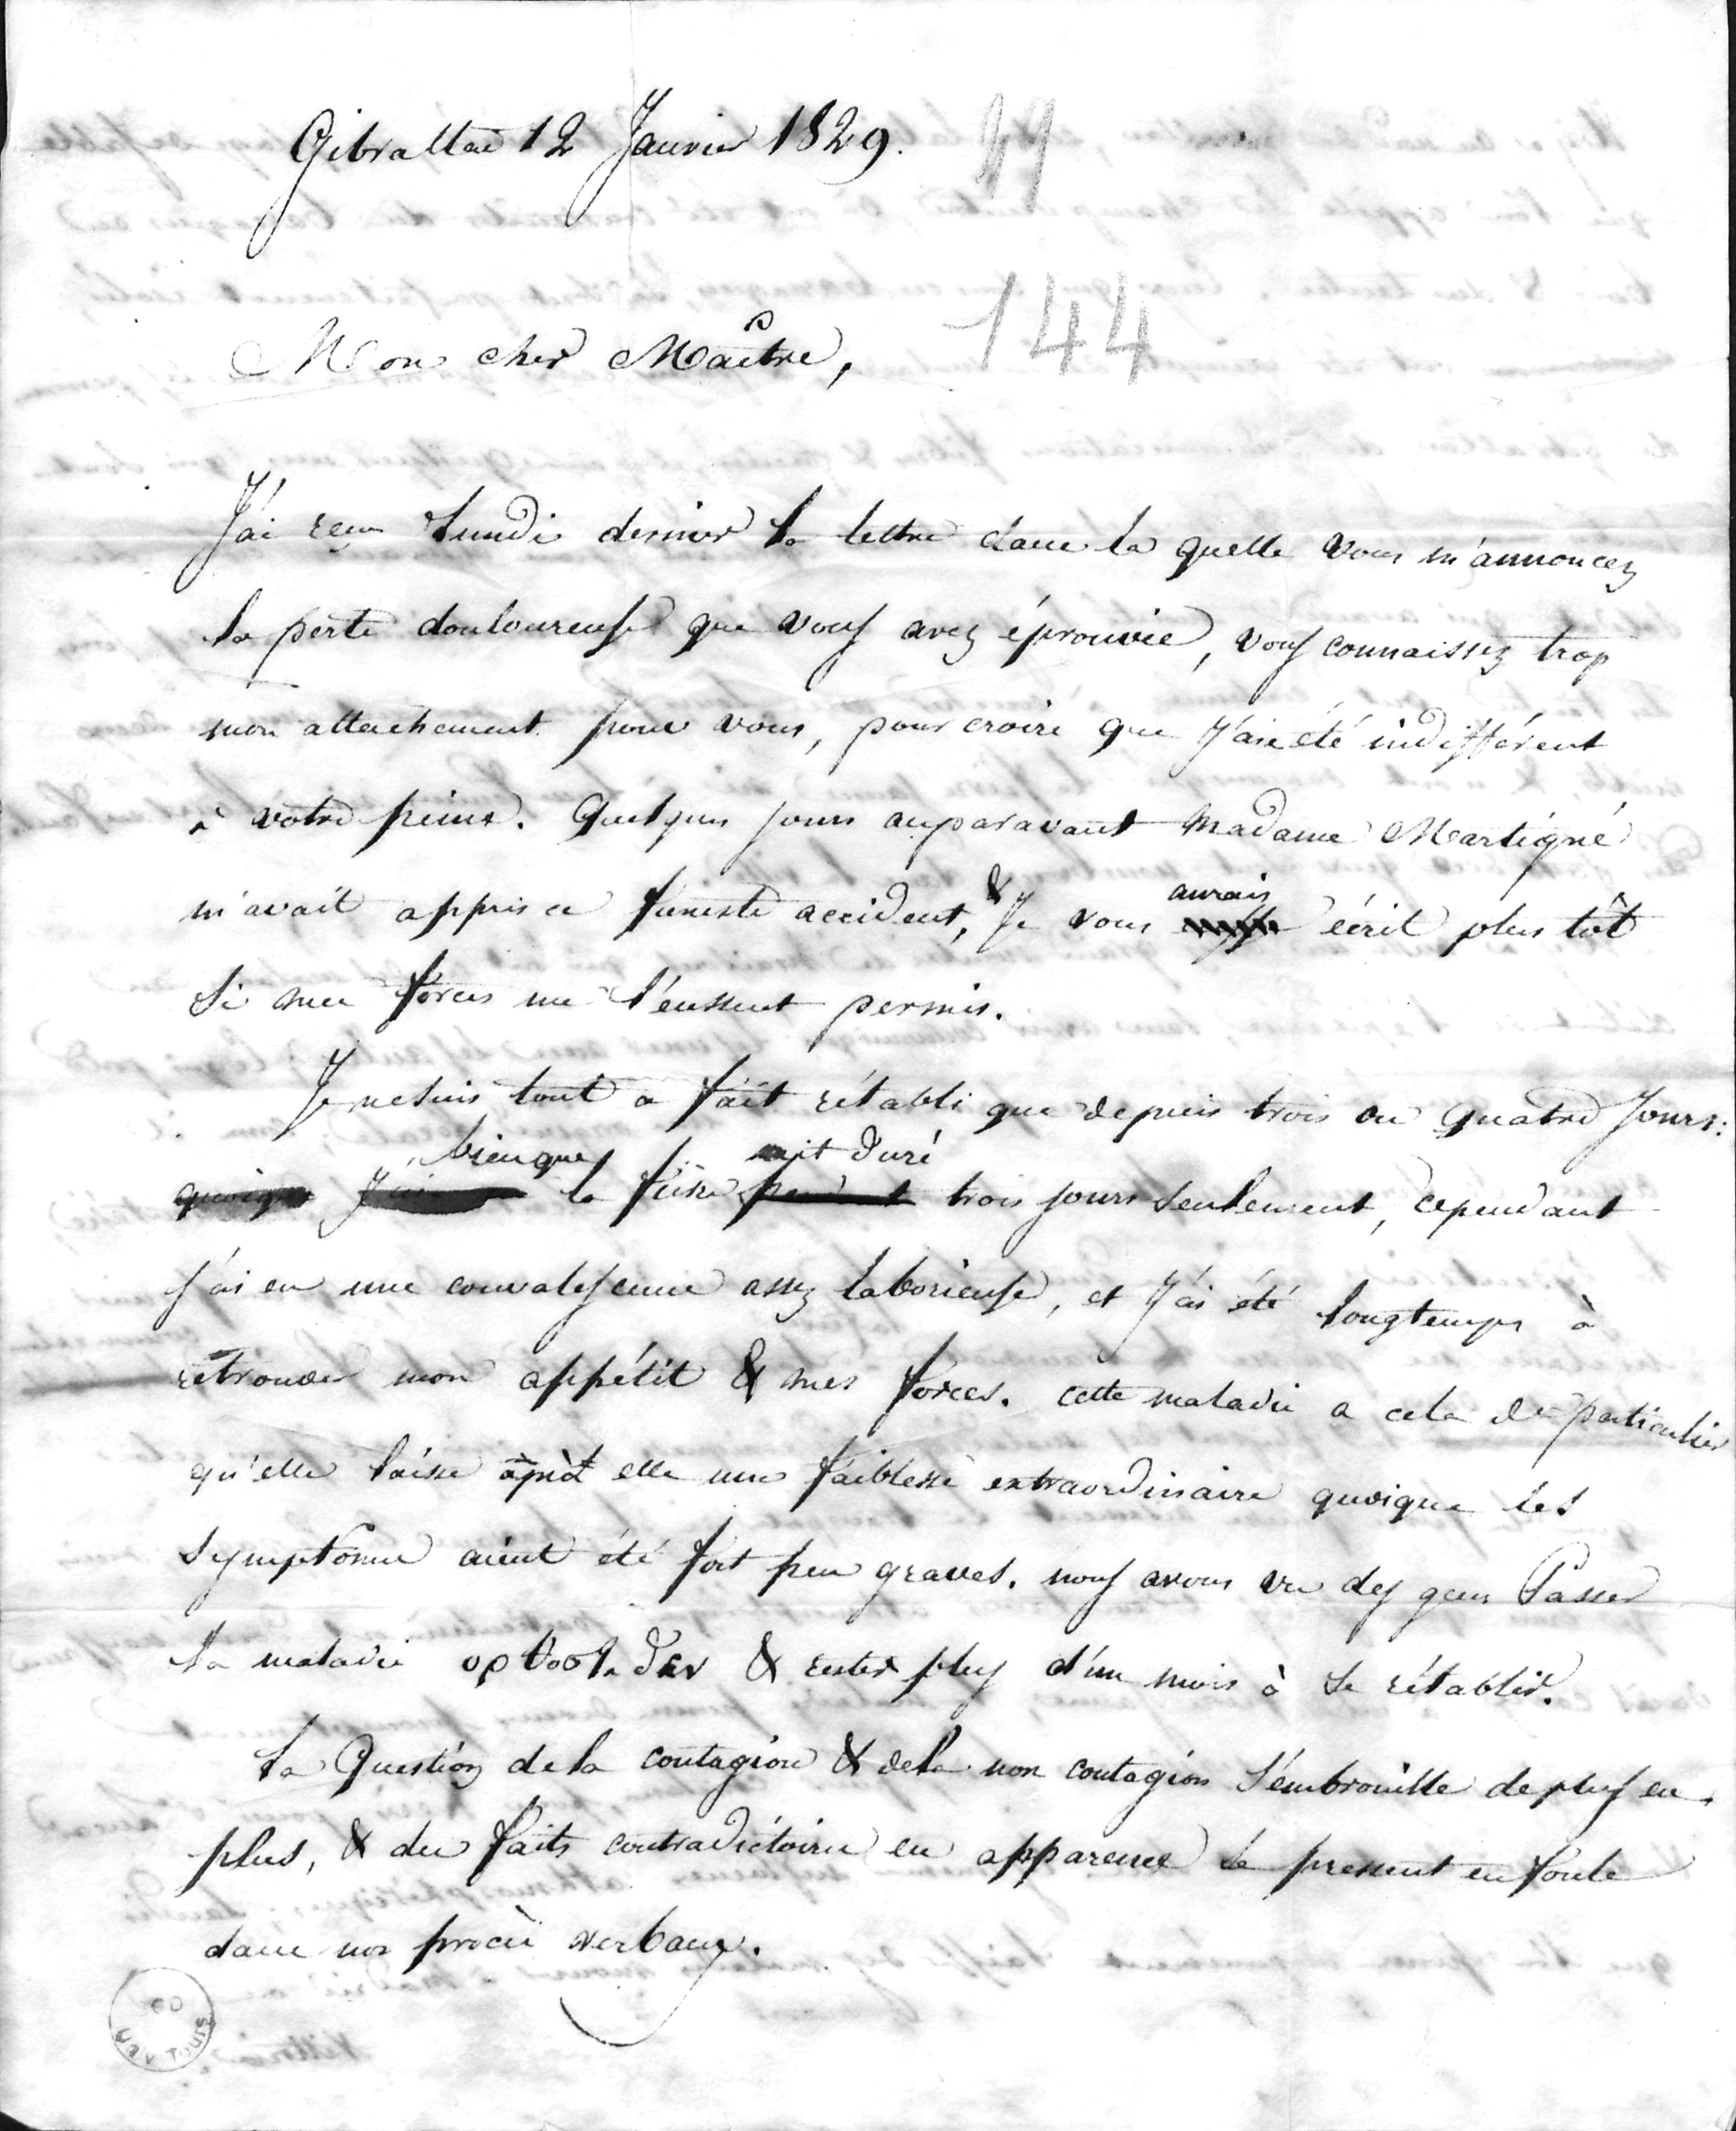 Gibraltar 12 Janvier 1829.
49
144
Mon cher Maître,
J'ai reçu lundi dernier la lettre dans la quelle vous m'annoncez
la perte douloureuse que vous avez éprouvée, vous connaissez trop
mon attachement pour vous, pour croire que j'aie été indifférent
à votre peine. Quelques jours auparavant Madame Martigné
m'avait appris ce funeste accident, & Je vous aurais écrit plus tôt
si mes forces me l'eussent permis.
Je ne suis tout à fait rétabli que depuis trois ou quatre jours:
bienque la fièvre ait duré trois jours seulement, cependant
j'ai eu une convalescence assez laborieuse, et j'ai été longtemps à
retrouver mon appétit & mes forces. cette maladie a cela de particulier
qu'elle laisse après elle une faiblesse extraordinaire quoique les
symptômes aient été fort peu graves. nous avons vu des gens Passer
la maladie & rester plus d'un mois à se rétablir.
la Question de la contagion & de la non contagion s'embrouille de plus en
plus, & des faits contradictoires en apparence se pressent en foule
dans nos procès verbaux.